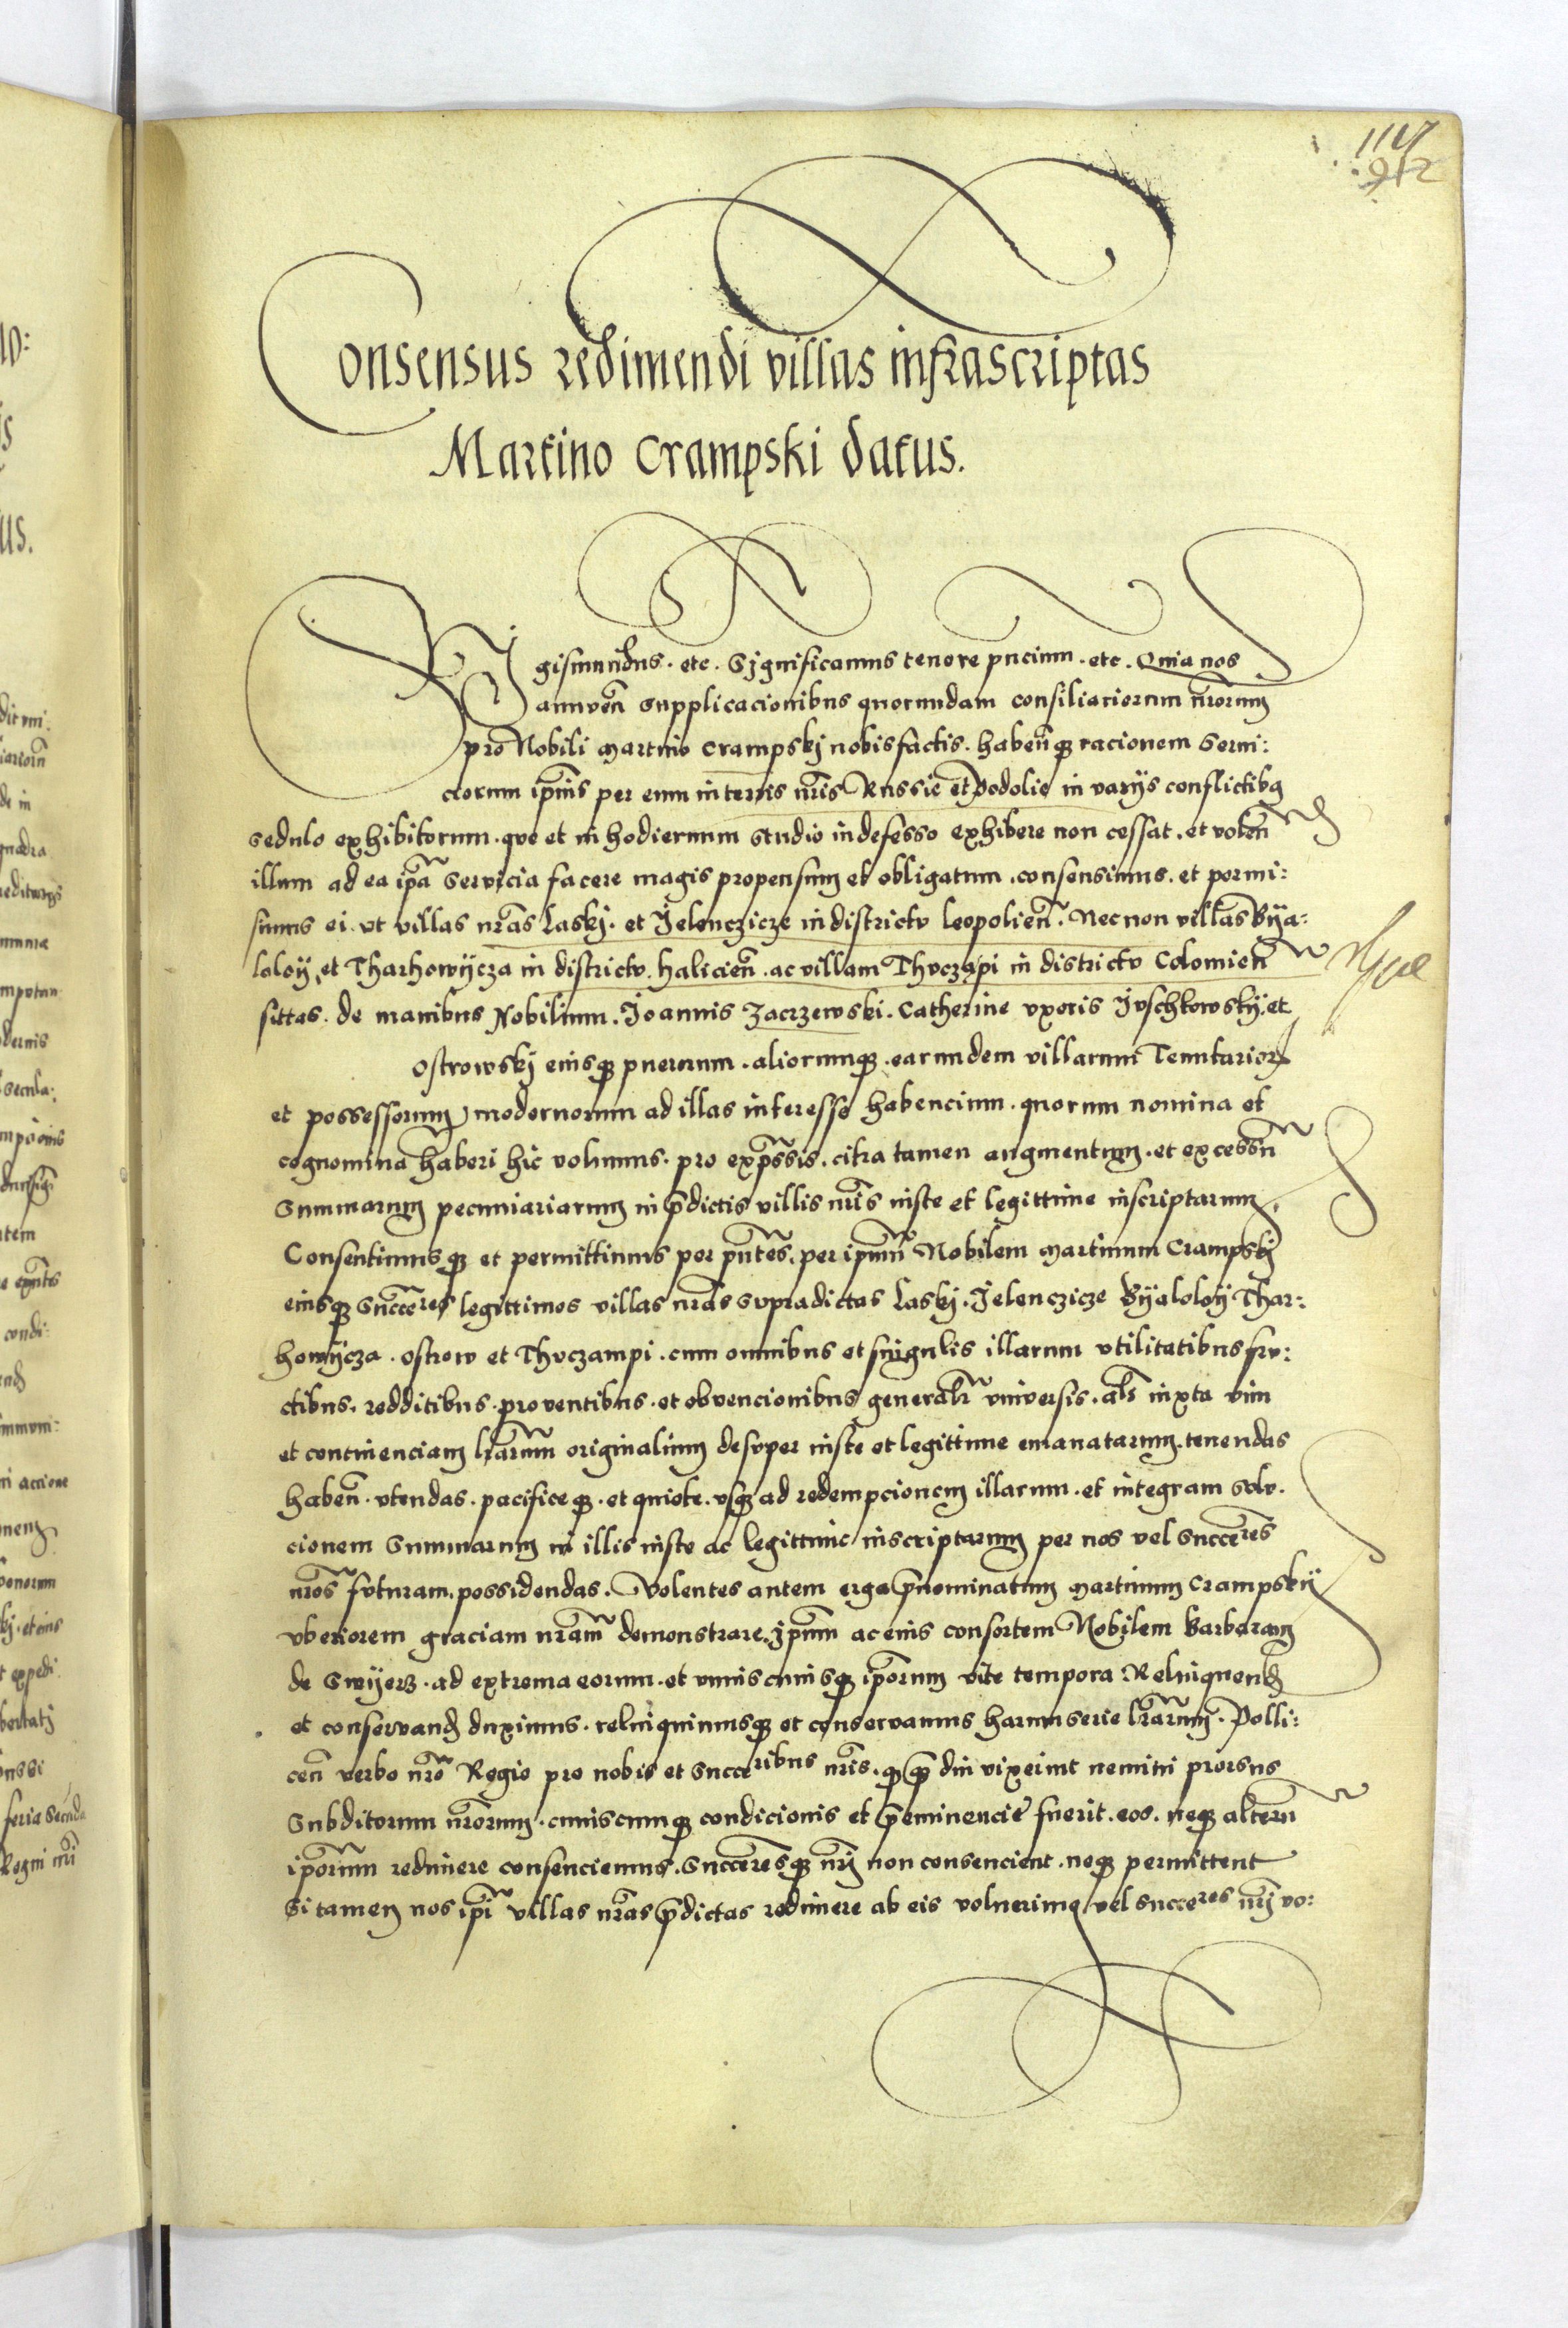 1117
912
Consensus redimendi villas infrascriptas
Martino Crampski datus.
Sigismundus . etc . Significamus tenore pncium . etc . Quia nos
annuen̄ supplicacionibus quorundam consiliariorum nr̄orum
pro Nobili Martino Crampskj nobis factis . haben̄q racionem servi:
ciorum ip̄ius per eum in terris nr̄is Russie et Podolie in varijs conflictibq
sedulo exhibitorum . que et in hodiernum studio indefesso exhibere non cessat . et volen̄
illum ad ea ip̄a servicia facere magis propensum et obligatum . consensimus . et permi:
simus ei . ut villas nr̄as Laskj . et Jelenczicze in districtu leopolien̄ . Nec non villas Bÿa:
loloÿ et Tharhowÿcza in districtu . halicien̄ . ac villam Thvczapi in districtu Colomien̄
sittas . de manibus Nobilium . Joannis Zaczewski . Catherine vxoris Jvschkowskÿ . et
Ostrowskj eiusq puerorum . aliorumq . earundem villarum Tenutarior
et possessorum modernorum ad illas interesse habencium . quorum nomina et
cognomina haberi hic volumus . pro exp̄ssis . citra tamen augmentum . et excessū
Summarum pecuniariarum in p̄dictis villis nr̄is iuste et legittime inscriptarum .
Consentimusq et permittimus per pn̄tes . per ipm̄ Nobilem Martinum Crampskj
eiusq Succēres legittimos villas nr̄as supradictas Laskj . Jelenczicze Bÿaloloÿ Thar:
howÿcza . Ostrow et Thvczampi . cum omnibus et singulis illarum vtilitatibus fru:
ctibus . redditibus . proventibus . et obvencionibus general̄r vniversis . al̄s iuxta vim
et continenciam lr̄arum originalium desuper iuste et legittime emanatarum . tenendas
haben̄ . vtendas . pacificeq . et quiete . vsq ad redempcionem illarum . et integram solu .
cionem Summarum in illis iuste ac legittime inscriptarum per nos vel succēres
nr̄os futuram possidendas . Volentes autem erga p̄nominatum Martinum Crampskÿ
vberiorem graciam nr̄am demonstrare . jpum̄ ac eius consortem Nobilem Barbaram
de Swÿerz . ad extrema eorum . et vniuscuiusq ip̄orum vite tempora Relinquend
et conservand duximus . relinquimusq et conservamus harum serie lr̄arum . Polli:
cen̄ verbo nr̄o Regio pro nobis et Succeribus nr̄is . q q̄ diu vixerint nemini prorsus
Subditorum nr̄orum . cuiuscumq condicionis et p̄eminencie fuerit . eos . neq alterū
ip̄orum redimere consenciemus . Succēresq nr̄j non consencient . neq permittent
Si tamen nos ip̄i villas nr̄as p̄dictas redimere ab eis voluerimq vel succeres nr̄j vo: